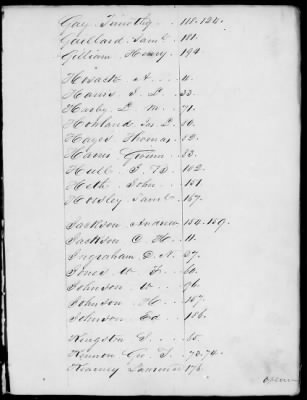 Gay, Timothy . . 118.124.
Gaillard Saml . 181.
Gilliam Henry . 194
Hosack A. . . . 4.
Harris J. L. . 33.
Hasby L. M. . 71.
Hohland Jas. L. 50.
Hayes Thomas . 52.
Hull J. B. . 102.
Heth John . . 151.
Horsley Saml . 167.
Jackson Andrew 154.159.
Jackson C. H. . 11.
Ingraham D. N. 37.
Jones W. F. . . 60.
Johnson W. . . 96.
Johnson H. . . 167.
Johnson Ed. . . 186.
Kingston S. . . 65.
Kennon Geo. T. . 73.74.
Kearney Lawrence 176.